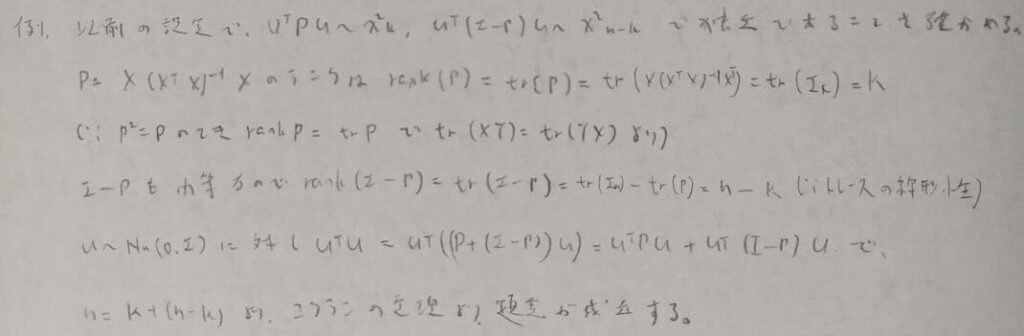 例1. 以前の設定で、UᵀPU ~ χ²k, Uᵀ(I-P)U ~ χ²n-k が独立であることを確かめる。
P = X(XᵀX)⁻¹X のうち rank(P) = tr(P) = tr(X(XᵀX)⁻¹Xᵀ) = tr(Ik) = k
(∵ P²=P のとき rank P = tr P で tr(XY) = tr(YX) より)
I-P も巾等なので rank(I-P) = tr(I-P) = tr(In) - tr(P) = n - k (∵トレースの線形性)
u ~ Nn(0, I) に対し UᵀU = Uᵀ((P+(I-P))U) = UᵀPU + Uᵀ(I-P)U で、
n = k+(n-k) より、コクランの定理より題意が成立する。